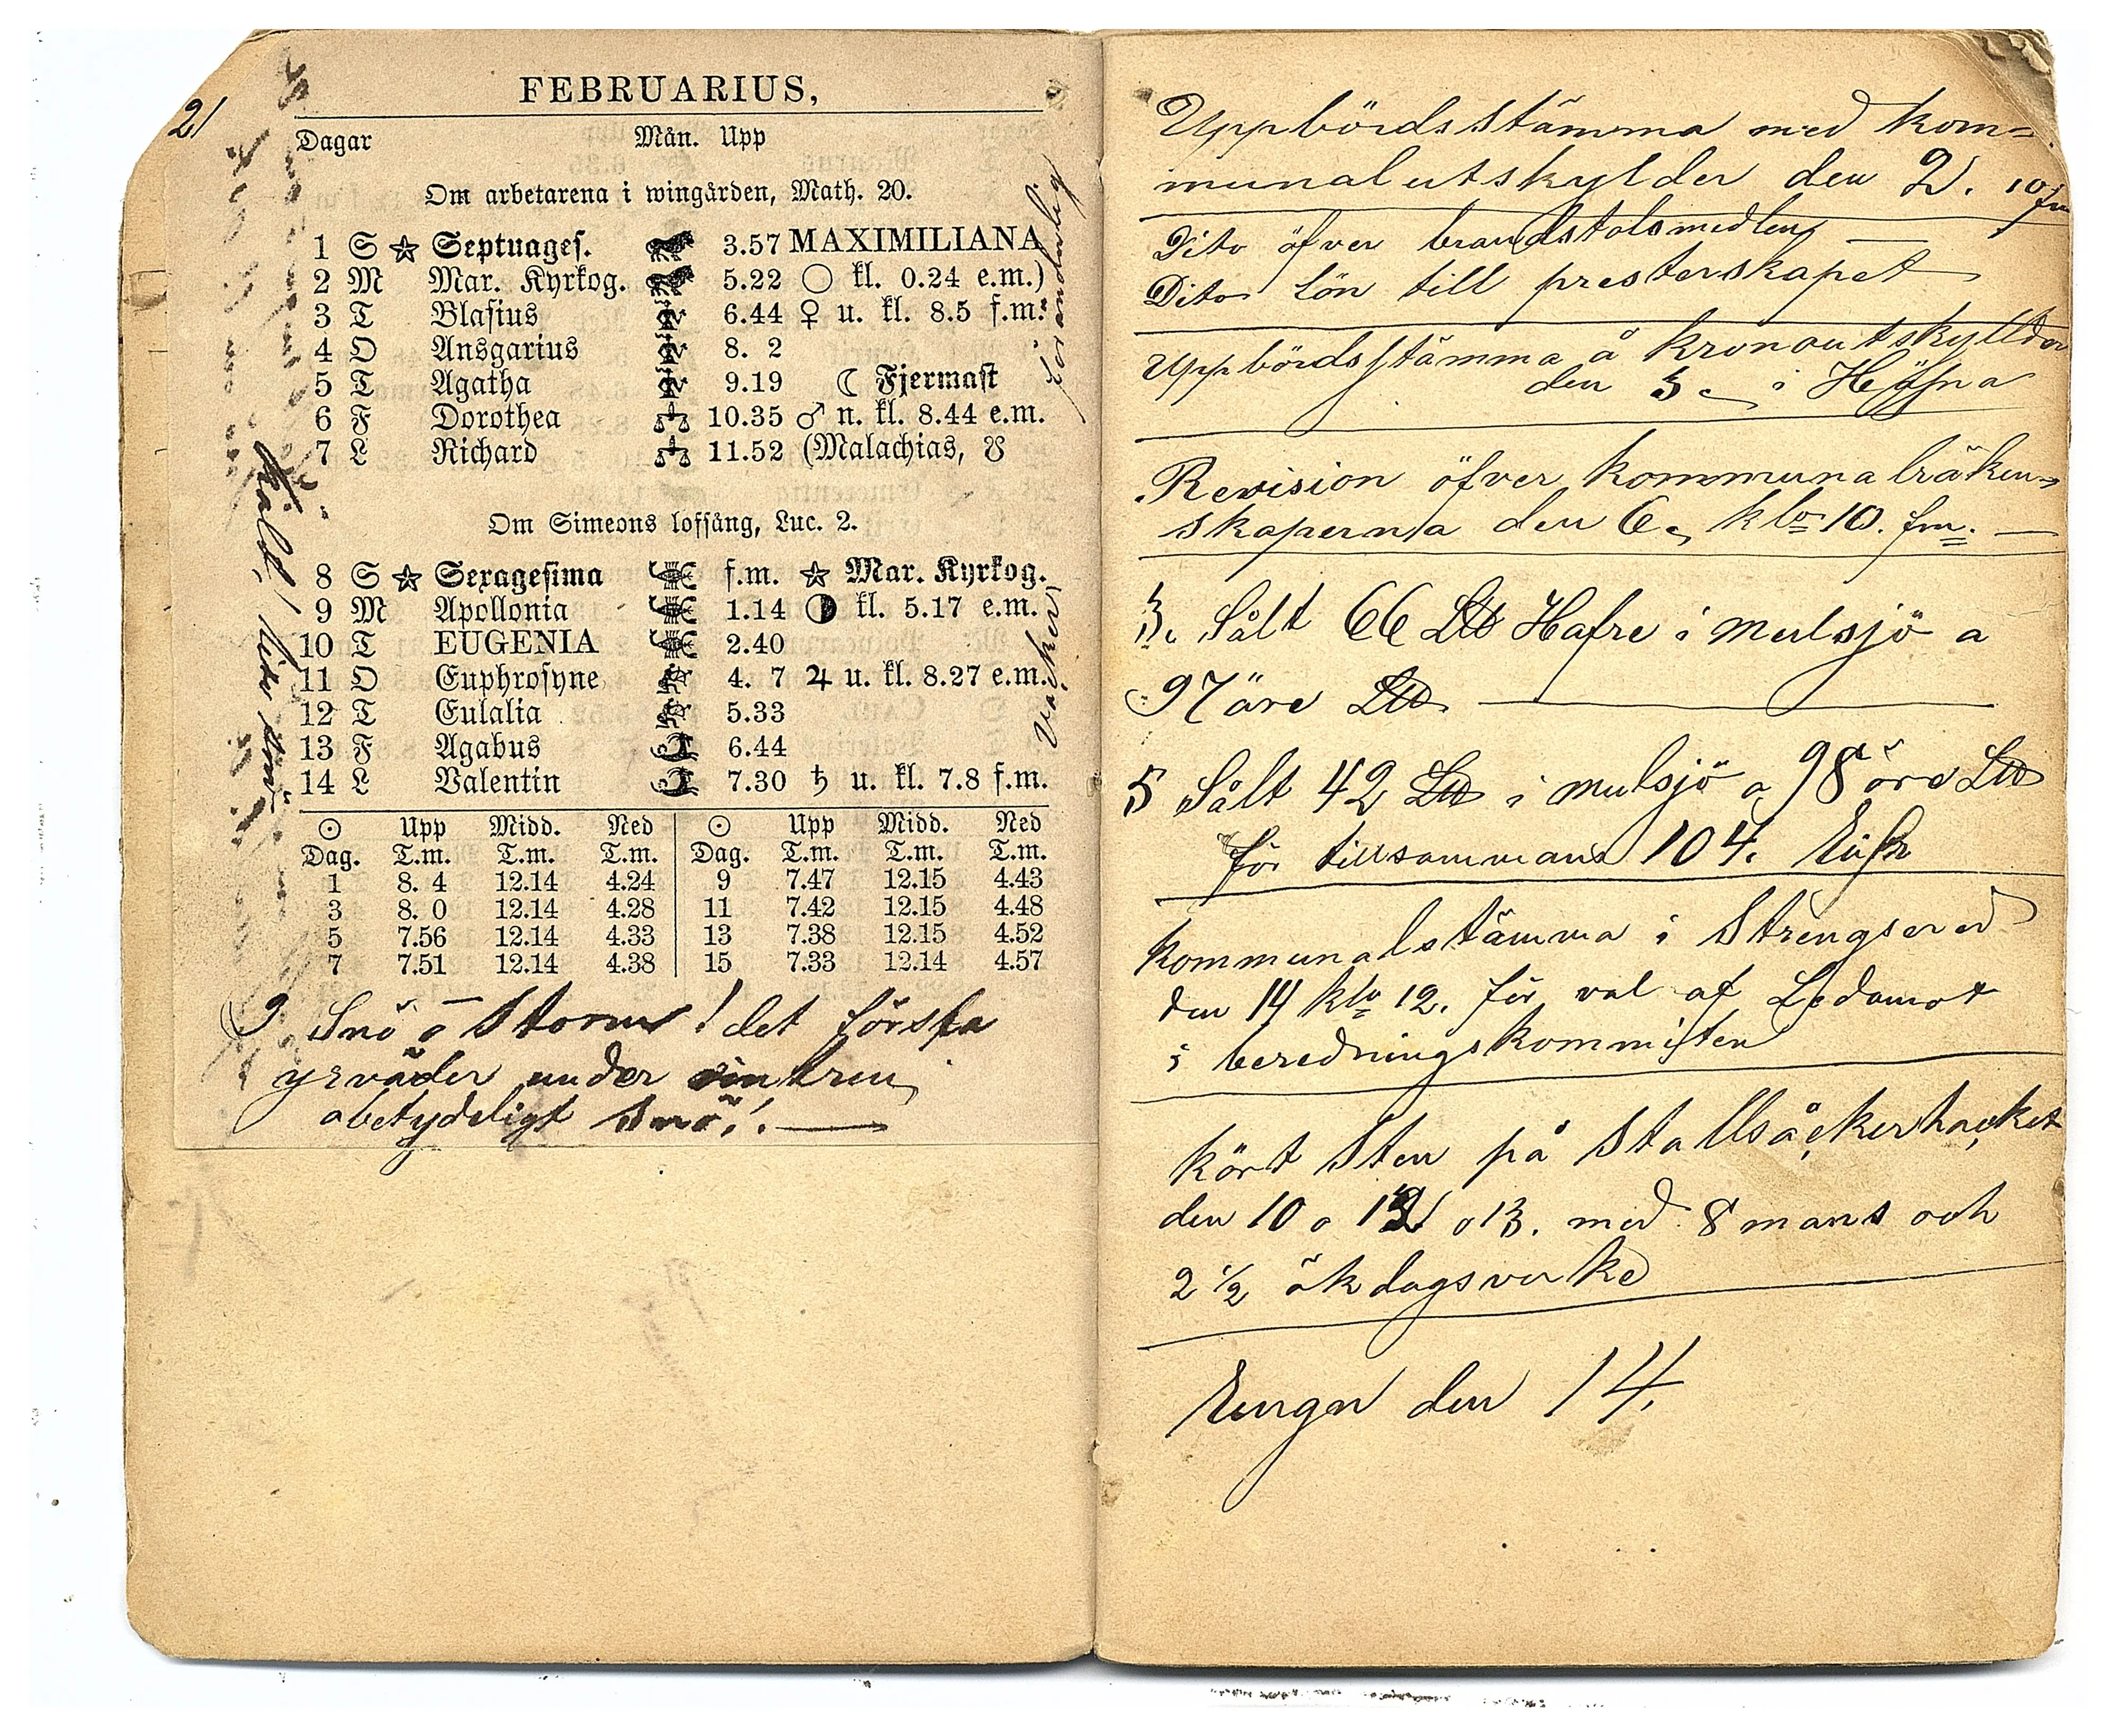 21
FEBRUARIUS,
Dagar Mån. Upp
Om arbetarena i wingården, Math. 20.
1 S ☆ Septuages. 3.57 MAXIMILIANA
2 M Mar. Kyrkog. 5.22 ○ kl. 0.24 e.m.)
3 T Blasius 6.44 ♀ u. kl. 8.5 f.m.
4 O Ansgarius 8. 2
5 T Agatha 9.19 ☾ Fjermast
6 F Dorothea 10.35 ♂ n. kl. 8.44 e.m.
7 L Richard 11.52 (Malachias, ☋
Om Simeons lofsång, Luc. 2.
8 S ☆ Sexagesima f.m. ☆ Mar. Kyrkog.
9 M Apollonia 1.14 ◑ kl. 5.17 e.m.
10 T EUGENIA 2.40
11 O Euphrosyne 4. 7 ♃ u. kl. 8.27 e.m.
12 T Eulalia 5.33
13 F Agabus 6.44
14 L Valentin 7.30 ♄ u. kl. 7.8 f.m.
☉ Upp Midd. Ned ☉ Upp Midd. Ned
Dag. T.m. T.m. T.m. Dag. T.m. T.m. T.m.
1 8. 4 12.14 4.24 9 7.47 12.15 4.43
3 8. 0 12.14 4.28 11 7.42 12.15 4.48
5 7.56 12.14 4.33 13 7.38 12.15 4.52
7 7.51 12.14 4.38 15 7.33 12.14 4.57
kallt! lite snö
föränderlig
Vackert
9 Snö o Storm! det första
yrväder under vintren
obetydeligt snö!. —
Uppbördsstämma med kom=
munalutskylder den 2. 10 fm
Dito öfver brandstolsmedlen —
Dito lön till presterskapet
Uppbördsstämma å kronoutskyllder
den 5. i Höfna
Revision öfver kommunalräken=
skaperna den 6. klo 10. fm. —
3. Sålt 66 L℔ Hafre i mulsjö a
97 öre L℔ —
5 Sålt 42 L℔ i mulsjö a 98 öre L℔
för tillsammans 104.
Kommunalstämma i Strengsered
den 14 klo 12. för val af Ledamot
i beredningskommitten
kört Sten på Stallsåckerhacket
den 10 o 12 o 13. med 8 mans och
2 1/2 ökdagsverke
den 14.